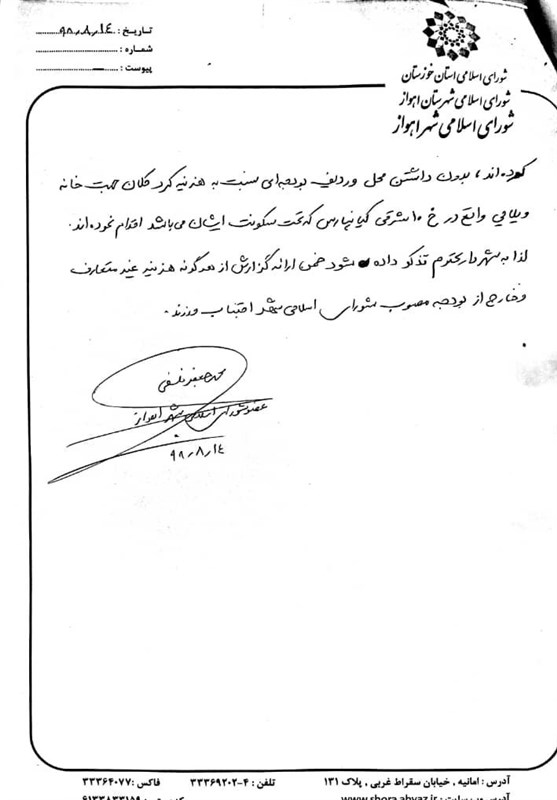 تاریخ : ۹۸٫۸٫۱٤
شماره :
پیوست :
شورای اسلامی استان خوزستان
شورای اسلامی شهرستان اهواز
شورای اسلامی شهر اهواز
کرده‌اند، بدون داشتن محل و ردیف بودجه‌ای نسبت به هزینه کرد کلان جهت خانه
ویلایی واقع در خ ۱۰ شرقی کیانپارس که تحت سکونت ایشان می‌باشد اقدام نموده‌اند.
لذا به شهردار محترم تذکر داده شود ضمن ارائه گزارش از هرگونه هزینه غیر متعارف
و خارج از بودجه مصوب شورای اسلامی شهر اجتناب ورزند.
محمدجعفر فلسفی
عضو شورای اسلامی شهر اهواز
۹۸٫۸٫۱٤
آدرس : امانیه ، خیابان سقراط غربی ، پلاک ۱۳۱ تلفن : ۴-۳۳۳۶۹۲۰۲ فاکس : ۳۳۳۶۴۰۷۷
آدرس وب سایت : www.shora.ahvaz.ir ۶۱۳۳۸۳۳۱۵۹